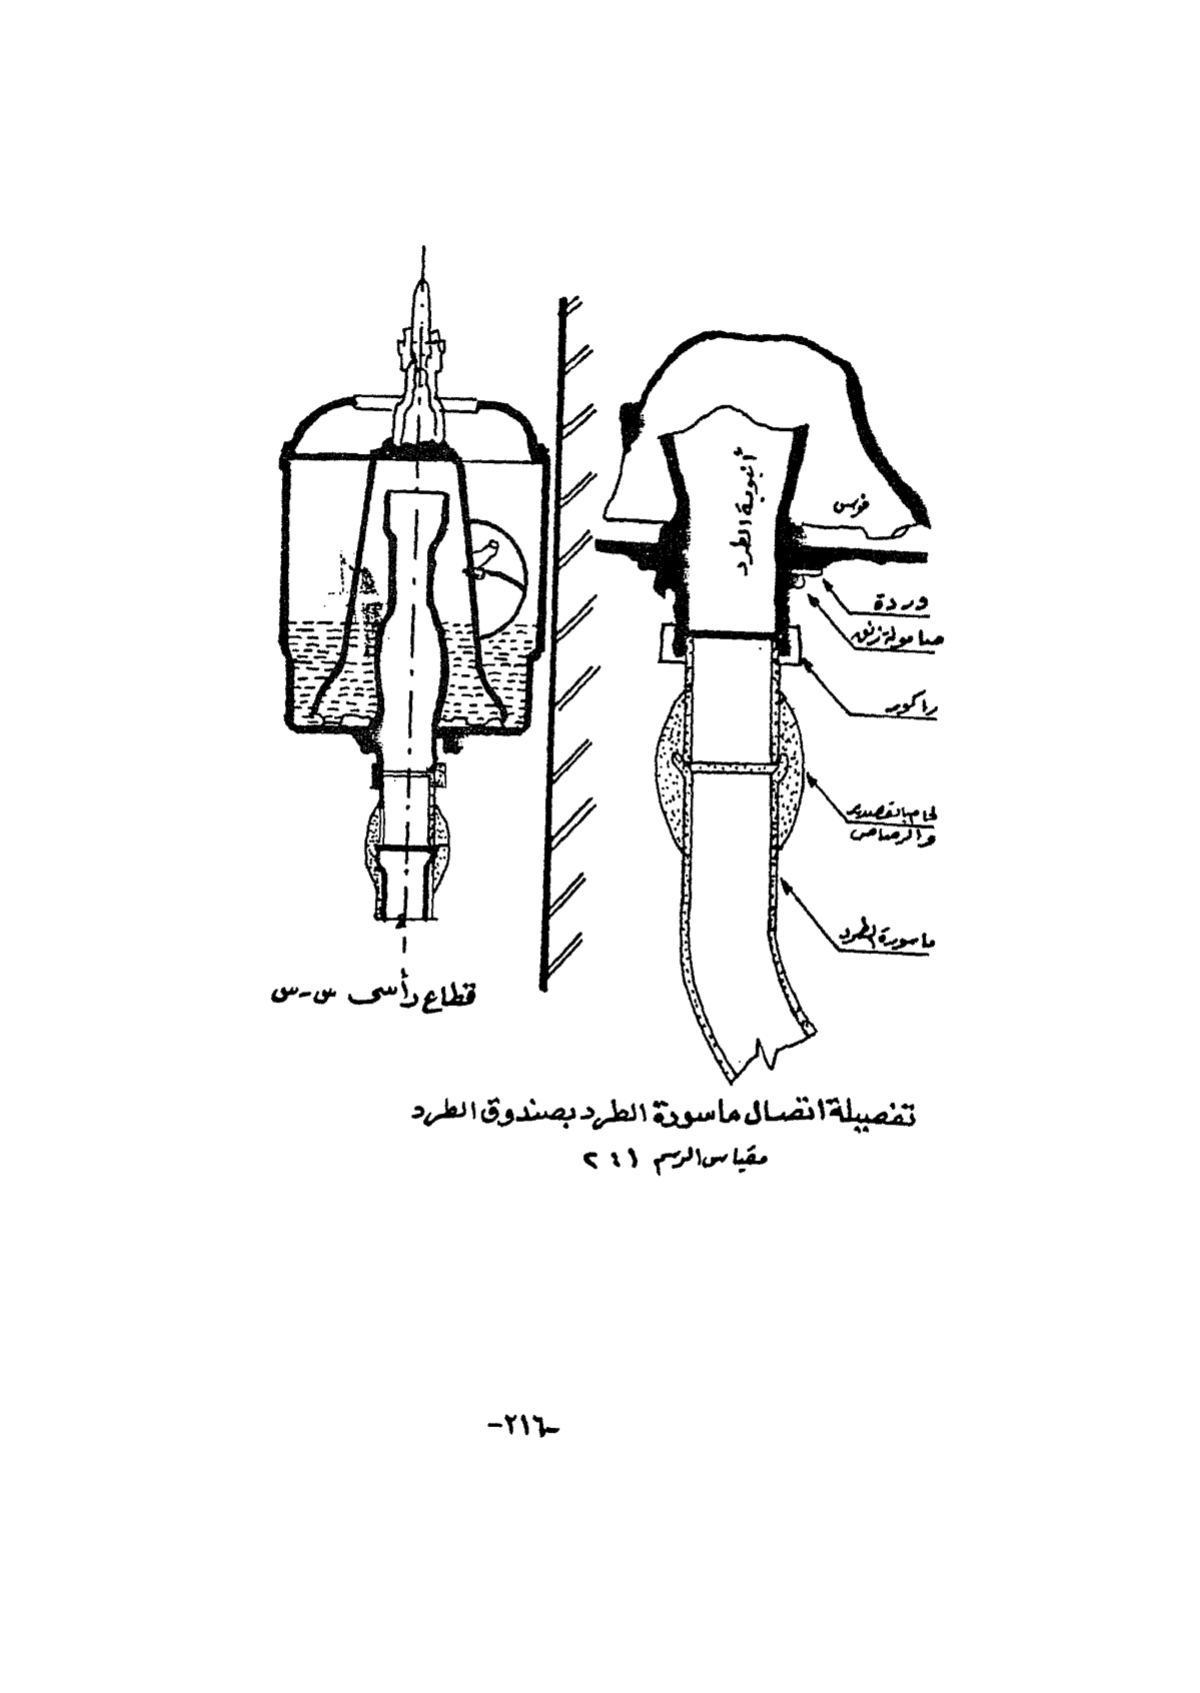 أنبوبة الطرد
قوس
وردة
صامولة زنق
راكور
لحام بالقصدير
والرصاص
ماسورة الطرد
قطاع رأسى س-س
تفصيلة اتصال ماسورة الطرد بصندوق الطرد
مقياس الرسم ١:٢
-٢١٦-